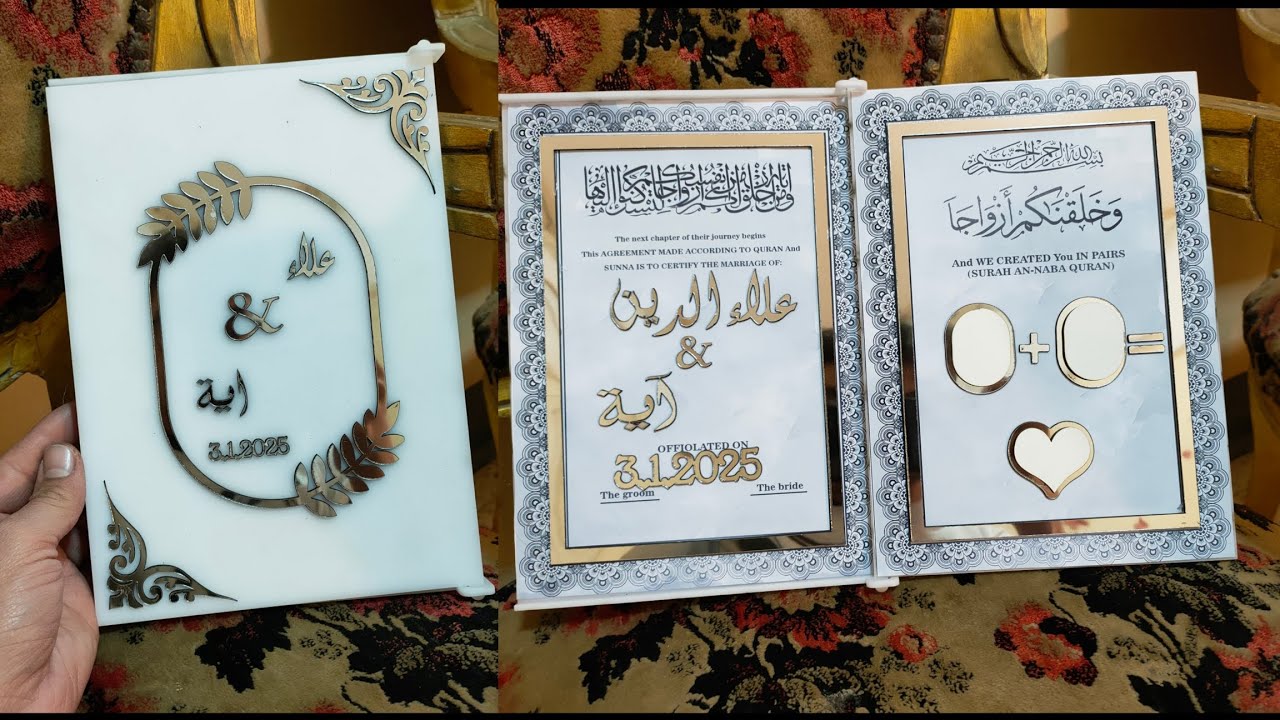 علاء
&
اية
3.1.2025
The next chapter of their journey begins
This AGREEMENT MADE ACCORDING TO QURAN And
SUNNA IS TO CERTIFY THE MARRIAGE OF:
علاء الدين
&
آية
OFFIOLATED ON
3.1.2025
The groom The bride
بسم الله الرحمن الرحيم
وَخَلَقْنَكُمْ أَزْوَاجَا
And WE CREATED You IN PAIRS
(SURAH AN-NABA QURAN)
+ =